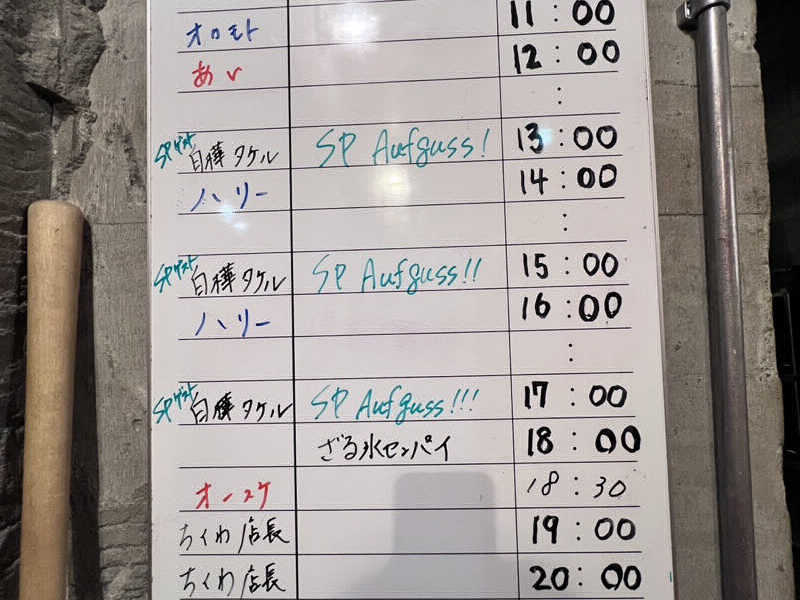 オロモト 11:00
あい 12:00
:
SPゲスト 白樺タケル SP Aufguss! 13:00
ハリー 14:00
:
SPゲスト 白樺タケル SP Aufguss!! 15:00
ハリー 16:00
:
SPゲスト 白樺タケル SP Aufguss!!! 17:00
ざる氷センパイ 18:00
オースケ 18:30
ちくわ店長 19:00
ちくわ店長 20:00